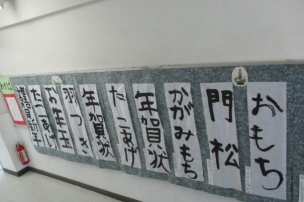 おもち
門松
かがみもち
年賀状
たこあげ
年賀状
羽つき
お年玉
たこあげ